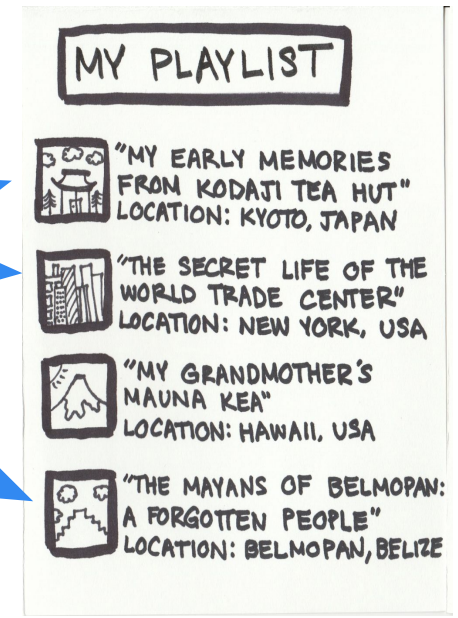 MY PLAYLIST
"MY EARLY MEMORIES
FROM KODAJI TEA HUT"
LOCATION: KYOTO, JAPAN
"THE SECRET LIFE OF THE
WORLD TRADE CENTER"
LOCATION: NEW YORK, USA
"MY GRANDMOTHER'S
MAUNA KEA"
LOCATION: HAWAII, USA
"THE MAYANS OF BELMOPAN:
A FORGOTTEN PEOPLE"
LOCATION: BELMOPAN, BELIZE